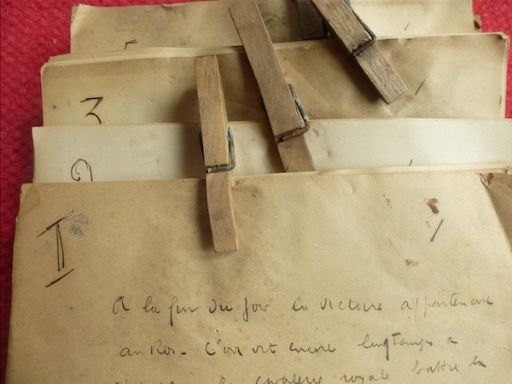 5
3
2
II
A la fin du jour la victoire appartenait
au Roi. L'on vit encore longtemps
la cavalerie royale battre la